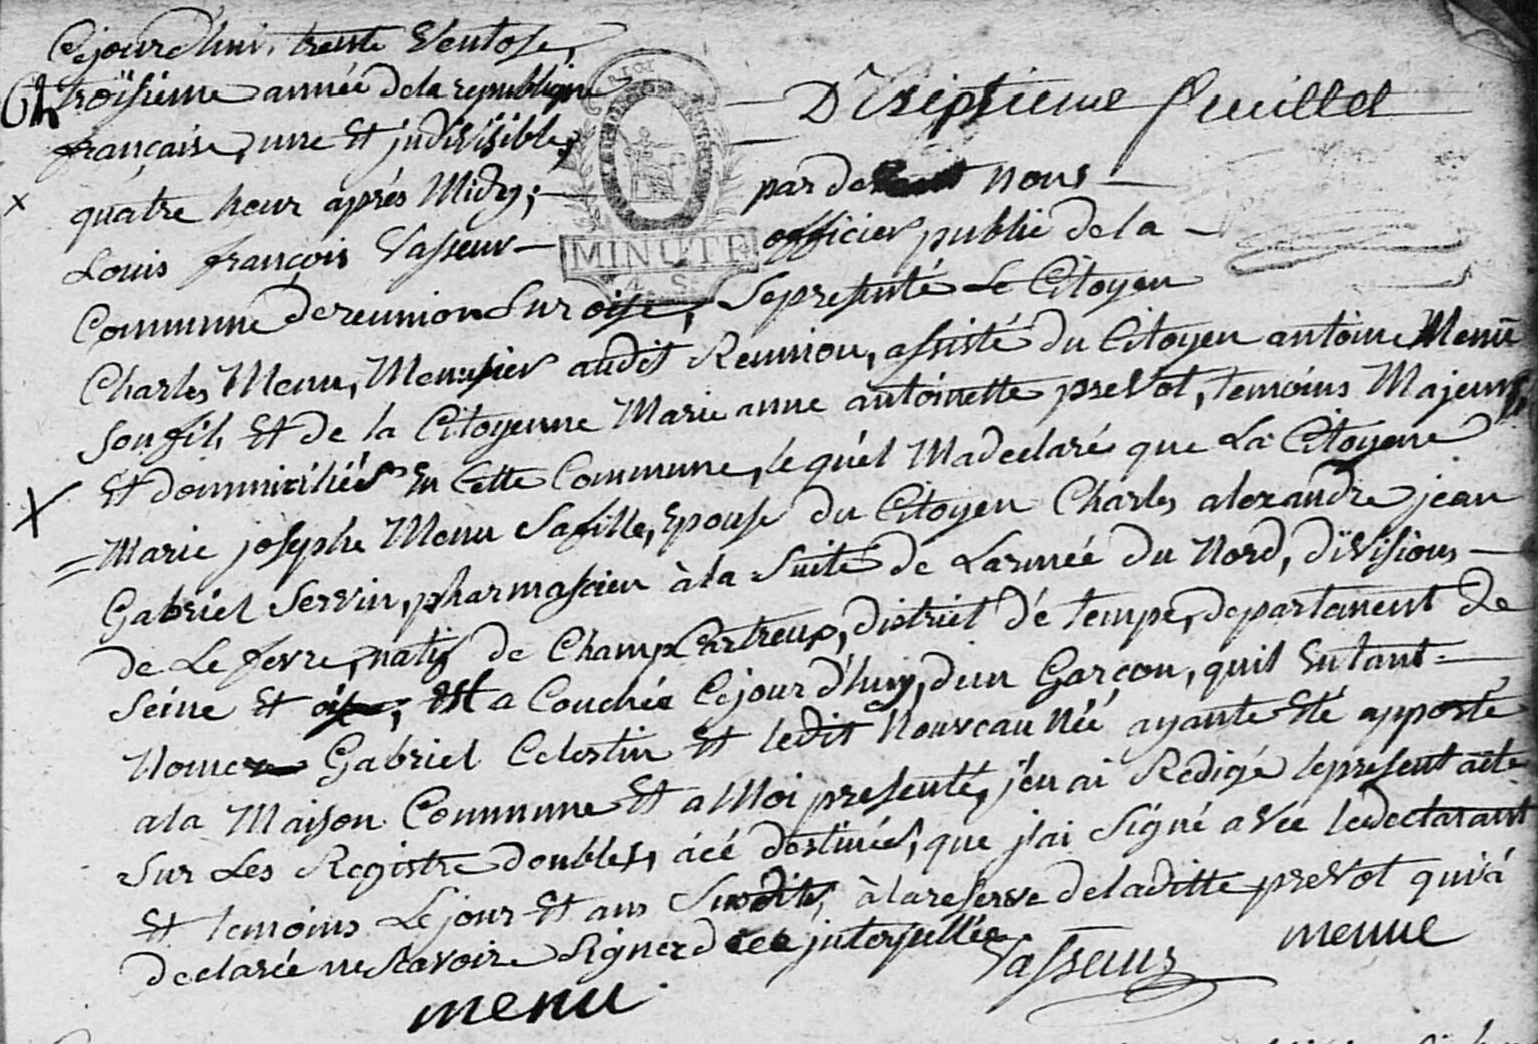 Cejourd'hui, trente Ventose,
troisieme année de la republique
Dixseptieme feuillet
française, une Et jndivisible,
quatre heur après Midy; pardevant nous
Louis françois Vasseur officier public de la
MINUTE
Commune de reunion Sur oise, Sepresenté Le Citoyen
Charles Menu, Menusier audit Reunion, assisté du Citoyen antoine Menu
Son fils Et de la Citoyenne Marie anne antoinette preVot, temoins Majeurs,
Et dommiciliés En Cette Commune, lequ'el Madeclaré que La Citoyene
Marie josephe Menu Safille, Epouse du Citoyen Charles alexandre jean
Gabriel Servin, pharmascien à la Suite de Larmée du Nord, divisions
de Lefevre, natif de Champ, district d'étempe, departement de
Seine Et oise, Est acouchée Cejourd'huy, dun Garçon, quil Entant
Nomer Gabriel Celestin Et ledit Nouveau Née ayante Eté apporté
ala Maison Commune Et a Moi presenté, j'en ai Rédigé lepresent acte
Sur Les Registre doubles, àcé destinés, que j'ai Signé aVec ledeclarant
Et temoins Lejour Et ans Susdits, à lareserve deladitte preVot quià
declarée ne Scavoir Signer dece jnterpellée
Vasseur menue
menu